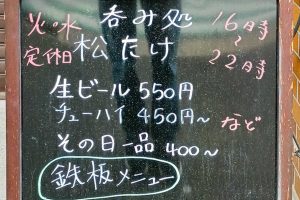 火・水
定休日
呑み処
松たけ
16時
～
22時
生ビール 550円
チューハイ 450円～
など
その日一品 400～
鉄板メニュー